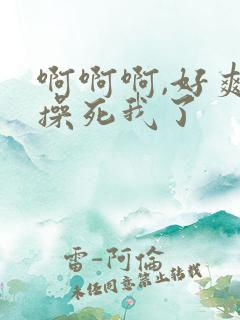 啊啊啊,好爽
操死我了
雷-阿倫
未经同意禁止转载